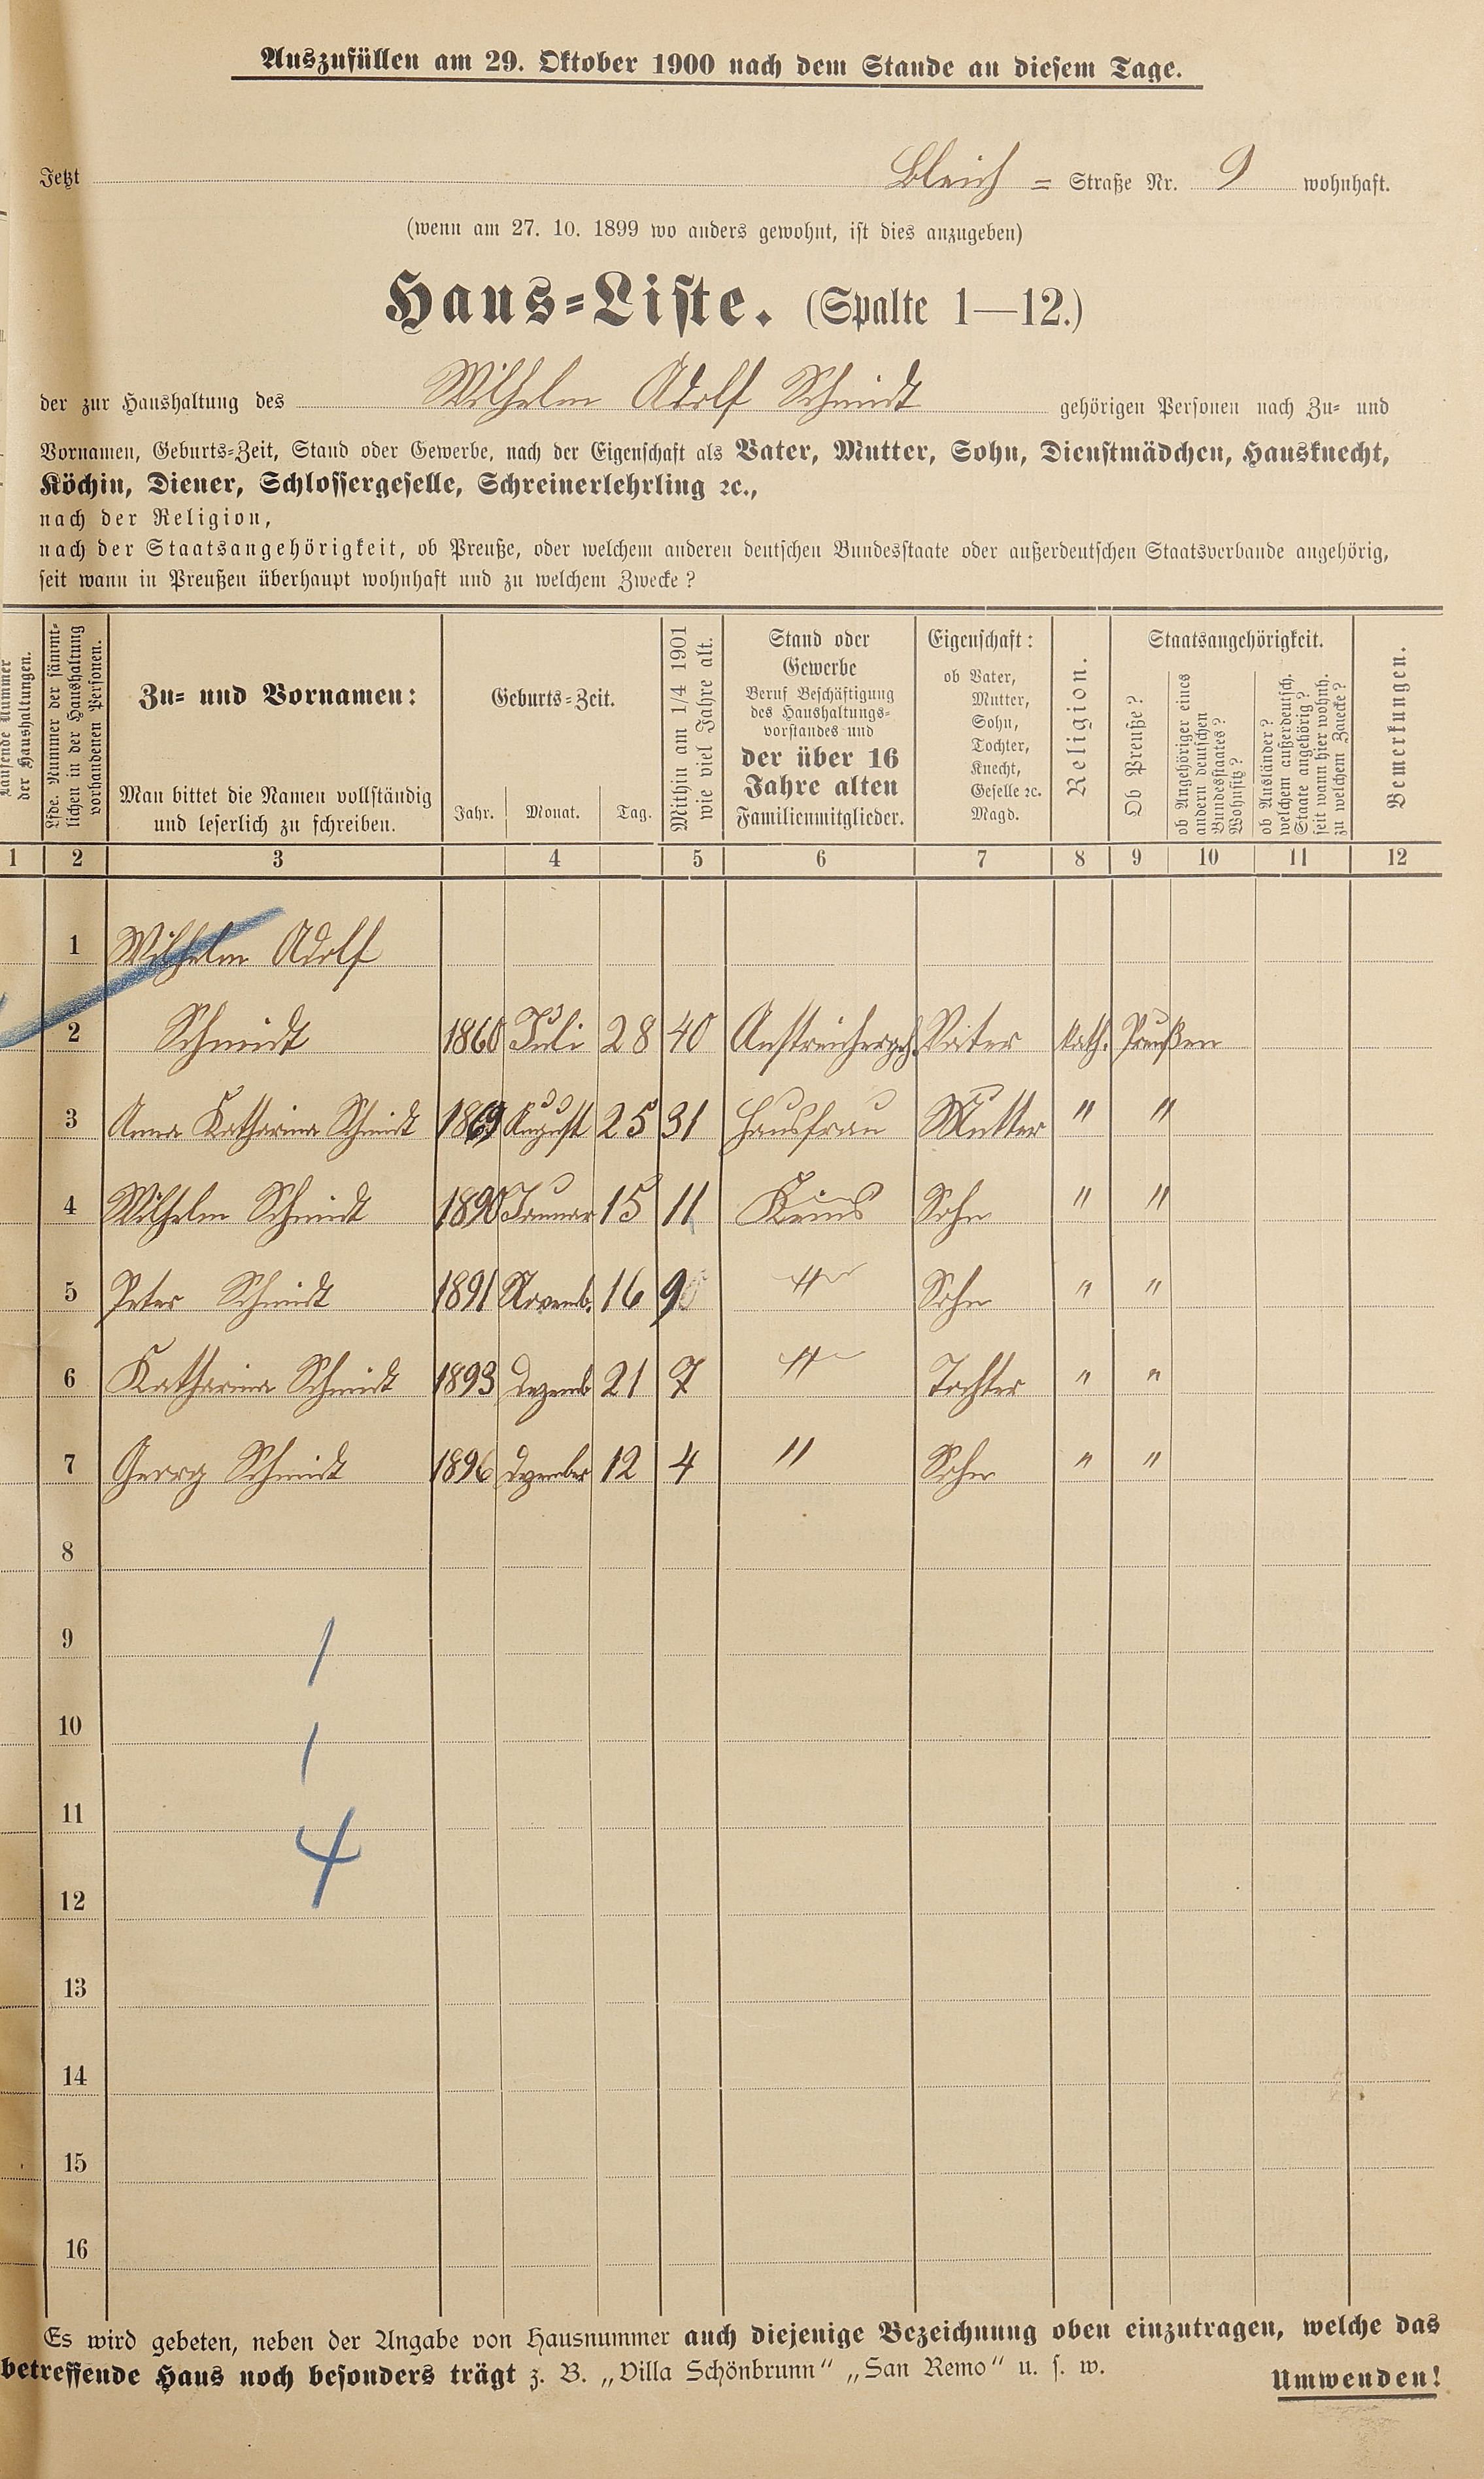 Auszufüllen am 29. Oktober 1900 nach dem Stande an diesem Tage.
Jetzt Bleich = Straße Nr. 9 wohnhaft.
(wenn am 27. 10. 1899 wo anders gewohnt, ist dies anzugeben)
Haus=Liste. (Spalte 1—12.)
der zur Haushaltung des Wilhelm Adolf Schmidt gehörigen Personen nach Zu= und
Vornamen, Geburts=Zeit, Stand oder Gewerbe, nach der Eigenschaft als Vater, Mutter, Sohn, Dienstmädchen, Hausknecht,
Köchin, Diener, Schlossergeselle, Schreinerlehrling ꝛc.,
nach der Religion,
nach der Staatsangehörigkeit, ob Preuße, oder welchem anderen deutschen Bundesstaate oder außerdeutschen Staatsverbande angehörig,
seit wann in Preußen überhaupt wohnhaft und zu welchem Zwecke?
Laufende Nummer
der Haushaltungen.
Lfde. Nummer der sämmt=
lichen in der Haushaltung
vorhandenen Personen.
Zu= und Vornamen:
Man bittet die Namen vollständig
und leserlich zu schreiben.
Geburts=Zeit.
Jahr. Monat. Tag.
Mithin am 1/4 1901
wie viel Jahre alt.
Stand oder
Gewerbe
Beruf Beschäftigung
des Haushaltungs=
vorstandes und
der über 16
Jahre alten
Familienmitglieder.
Eigenschaft:
ob Vater,
Mutter,
Sohn,
Tochter,
Knecht,
Geselle ꝛc.
Magd.
Religion.
Staatsangehörigkeit.
Ob Preuße?
ob Angehöriger eines
andern deutschen
Bundesstaates?
Wohnsitz?
ob Ausländer?
welchem außerdeutsch.
Staate angehörig?
seit wann hier wohnh.
zu welchem Zwecke?
Bemerkungen.
1 2 3 4 5 6 7 8 9 10 11 12
1 Wilhelm Adolf
2 Schmidt 1860 Juli 28 40 Anstreichergeh. Vater kath. Preußen
3 Anna Katharina Schmidt 1869 August 25 31 Hausfrau Mutter " "
4 Wilhelm Schmidt 1890 Januar 15 11 Keins Sohn " "
5 Peter Schmidt 1891 Novemb. 16 9 " Sohn " "
6 Katharina Schmidt 1893 Dezemb 21 7 " Tochter " "
7 Georg Schmidt 1896 Dezember 12 4 " Sohn " "
8
9 1
10 1
11
4
12
13
14
15
16
Es wird gebeten, neben der Angabe von Hausnummer auch diejenige Bezeichnung oben einzutragen, welche das
betreffende Haus noch besonders trägt z. B. „Villa Schönbrunn“ „San Remo“ u. s. w.
Umwenden!